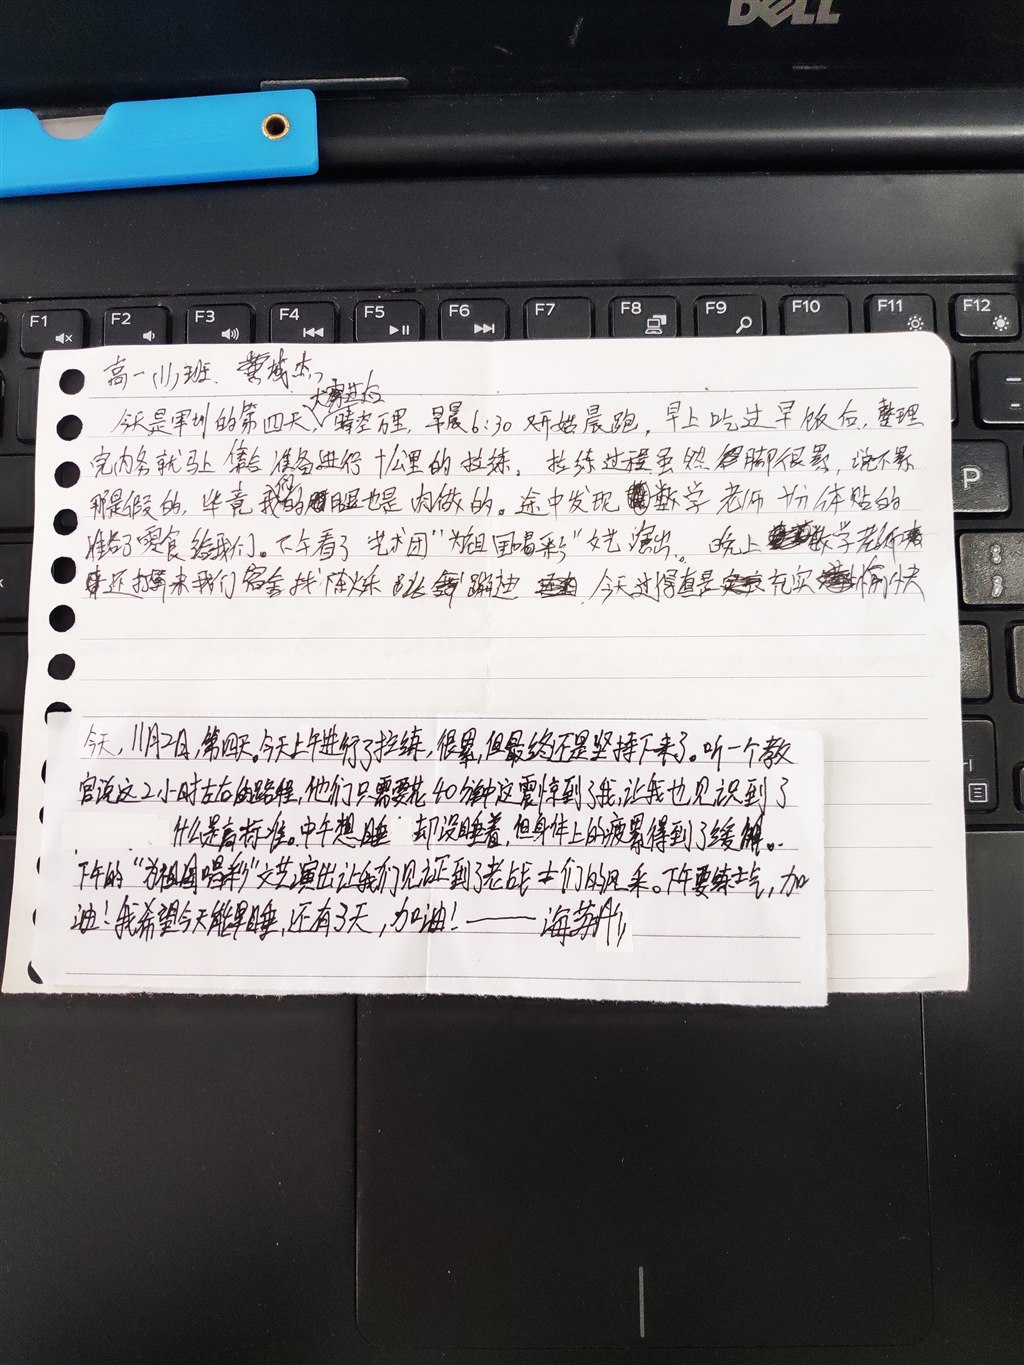 DELL
F1
F2
F3
F4
F5
F6
F7
F8
F9
F10
F11
F12
P
高一(11)班. 黄
今天是军训的第四天, 晴空万里, 早晨6:30 开始晨跑, 早上吃过早饭后, 整理
完内务就马上 准备进行十公里的拉练. 拉练过程虽然 脚很累, 说不累
那是假的, 毕竟 我们的腿也是肉做的。途中发现 数学老师十分体贴的
准备了零食给我们。下午看了"艺术团""为祖国唱彩"文艺演出。晚上 数学老师
还 来我们宿舍找 今天过得真是 充实 愉快
今天, 11月2日, 第四天。今天上午进行了拉练, 很累, 但最终还是坚持下来了。听一个教
官说这2小时左右的路程, 他们只需要花40分钟这震惊到了我, 让我也见识到了
什么是高标准。中午想睡 却没睡着, 但身体上的疲累得到了缓解。
下午的"为祖国唱彩"文艺演出让我们见证到了老战士们的风采。下午要练士气, 加
油! 我希望今天能早睡, 还有3天, 加油! —— 海苏彤